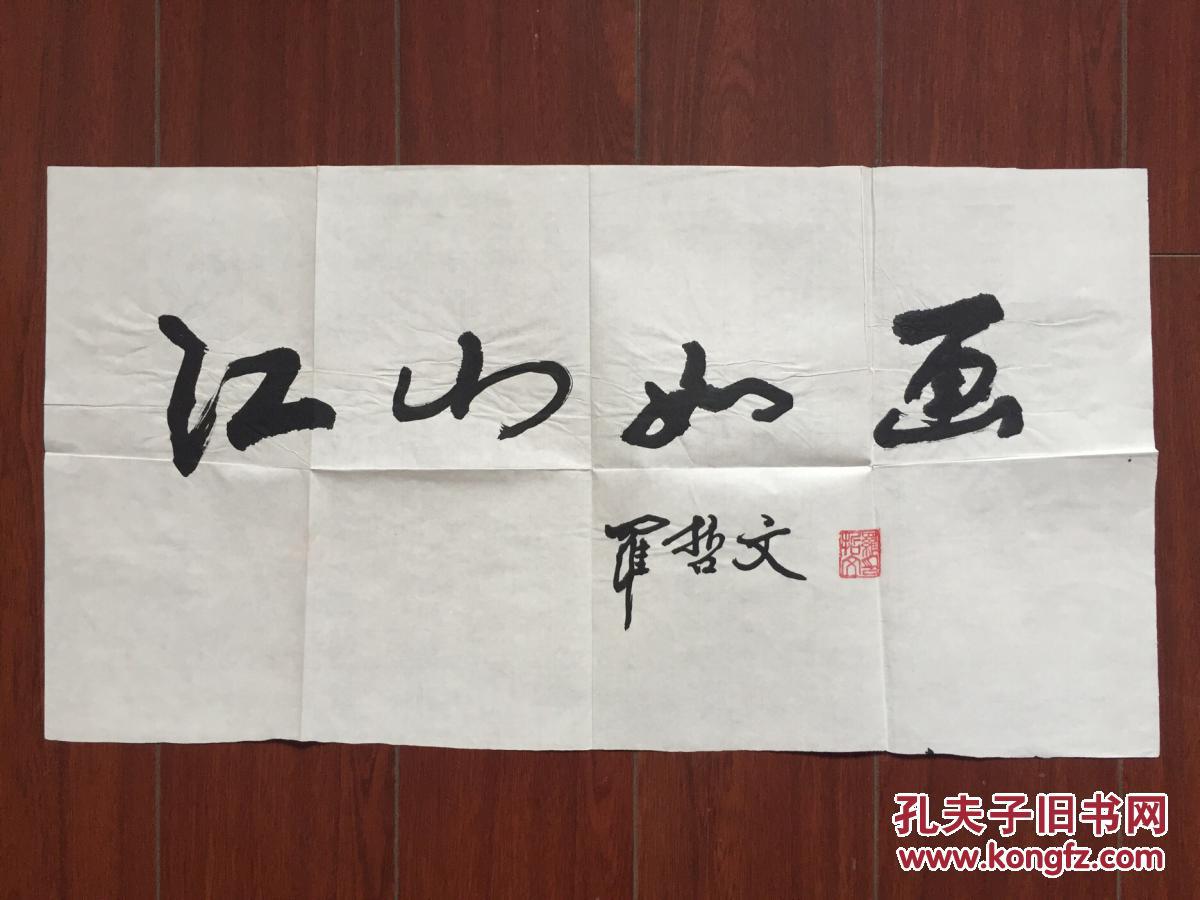 江山如画
罗哲文
羅哲文印
孔夫子旧书网
www.kongfz.com